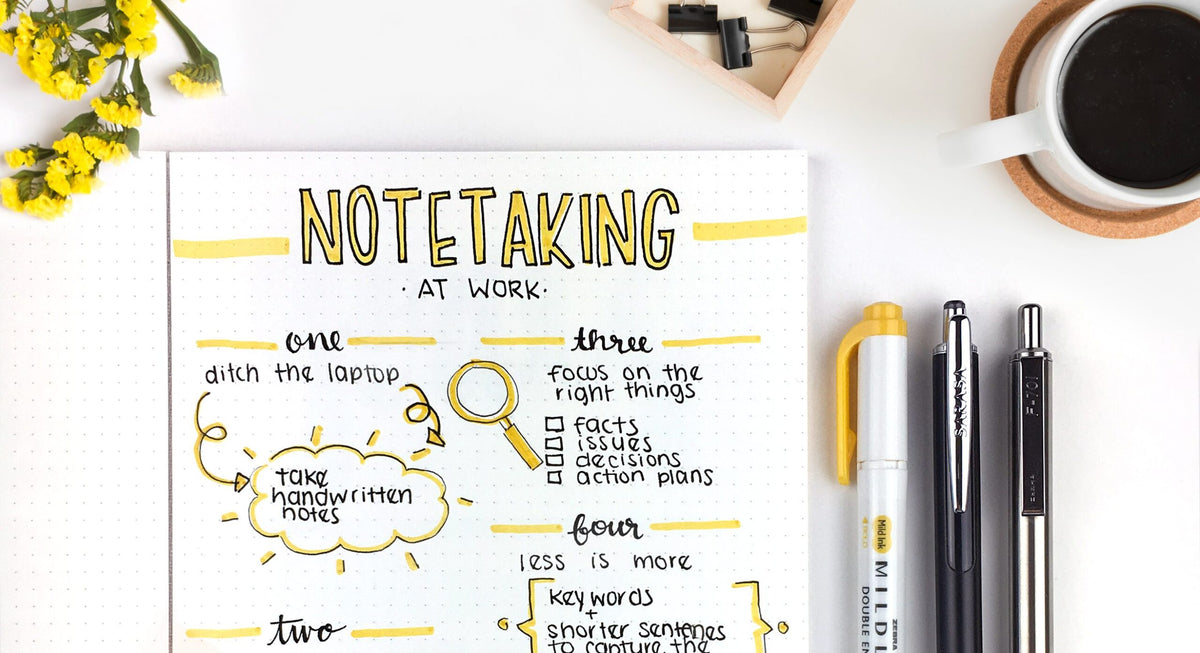 NOTETAKING
· AT WORK·
one
ditch the laptop
take
handwritten
notes
two
three
focus on the
right things
facts
issues
decisions
action plans
four
less is more
key words
+
shorter sentences
to capture the
Mild Ink
MILDL
DOUBLE EN
ZEBRA
SARASA
F-701